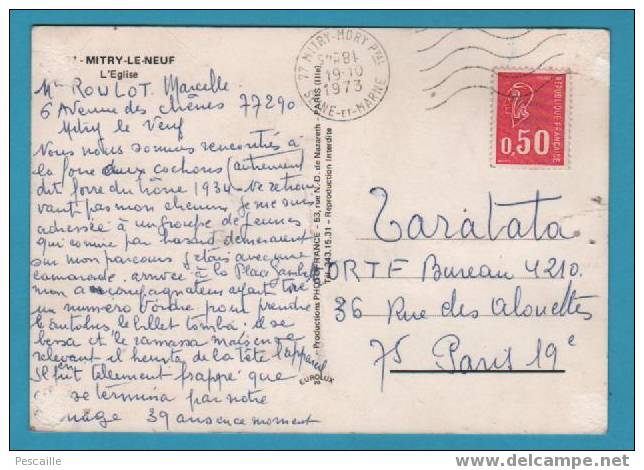 - MITRY-LE-NEUF
L'Eglise
Mme ROULOT Marcelle
6 Avenue des chênes 77290
Mitry le Neuf
Nous nous sommes rencontrés à
la foire aux cochons (autrement
dit foire du trône 1934 - ne retrou
vant pas mon chemin je me suis
adressée à un groupe de jeunes
qui comme par hasard demeuraient
sur mon parcours j'étais avec une
camarade. arrivée à la Place Gambetta
mon accompagnateur ayant tiré
un numéro d'ordre pour prendre
l'autobus le billet tomba il se
baissa et le ramassa mais en se
relevant il heurta de la tête l'appareil
Il fut tellement frappé que
se termina par notre
mariage 39 ans en ce moment
77 MITRY-MORY Pal
18H45
19-10
1973
SEINE-ET-MARNE
0,50
REPUBLIQUE FRANÇAISE
Productions PHOT FRANCE - 53, rue N.-D. de Nazareth - PARIS (IIIe)
343.15.31 - Reproduction Interdite
EUROLUX
Taratata
ORTF Bureau 4210.
36 Rue des alouettes
75 Paris 19e
PESCAILLE
www.delcampe.net